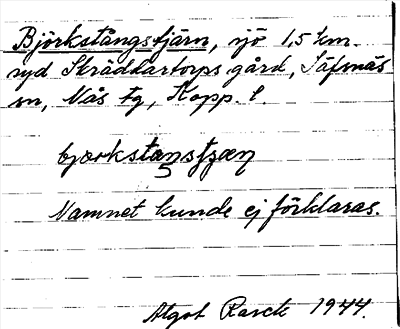 Björkstångstjärn, sjö 1,5 km.
syd Skräddartorps gård, Säfsnäs
sn, Nås tg, Kopp. l.
bjœrkstanstjœn
5
Namnet kunde ej förklaras.
Algot Rasck 1944.